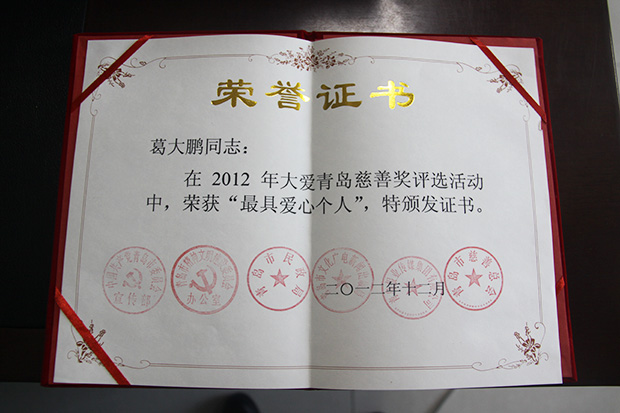 荣誉证书
葛大鹏同志：
在 2012 年大爱青岛慈善奖评选活动
中，荣获“最具爱心个人”，特颁发证书。
中国共产党青岛市委员会
宣传部
办公室
青岛市民政局
青岛市慈善总会
二〇一二年十二月